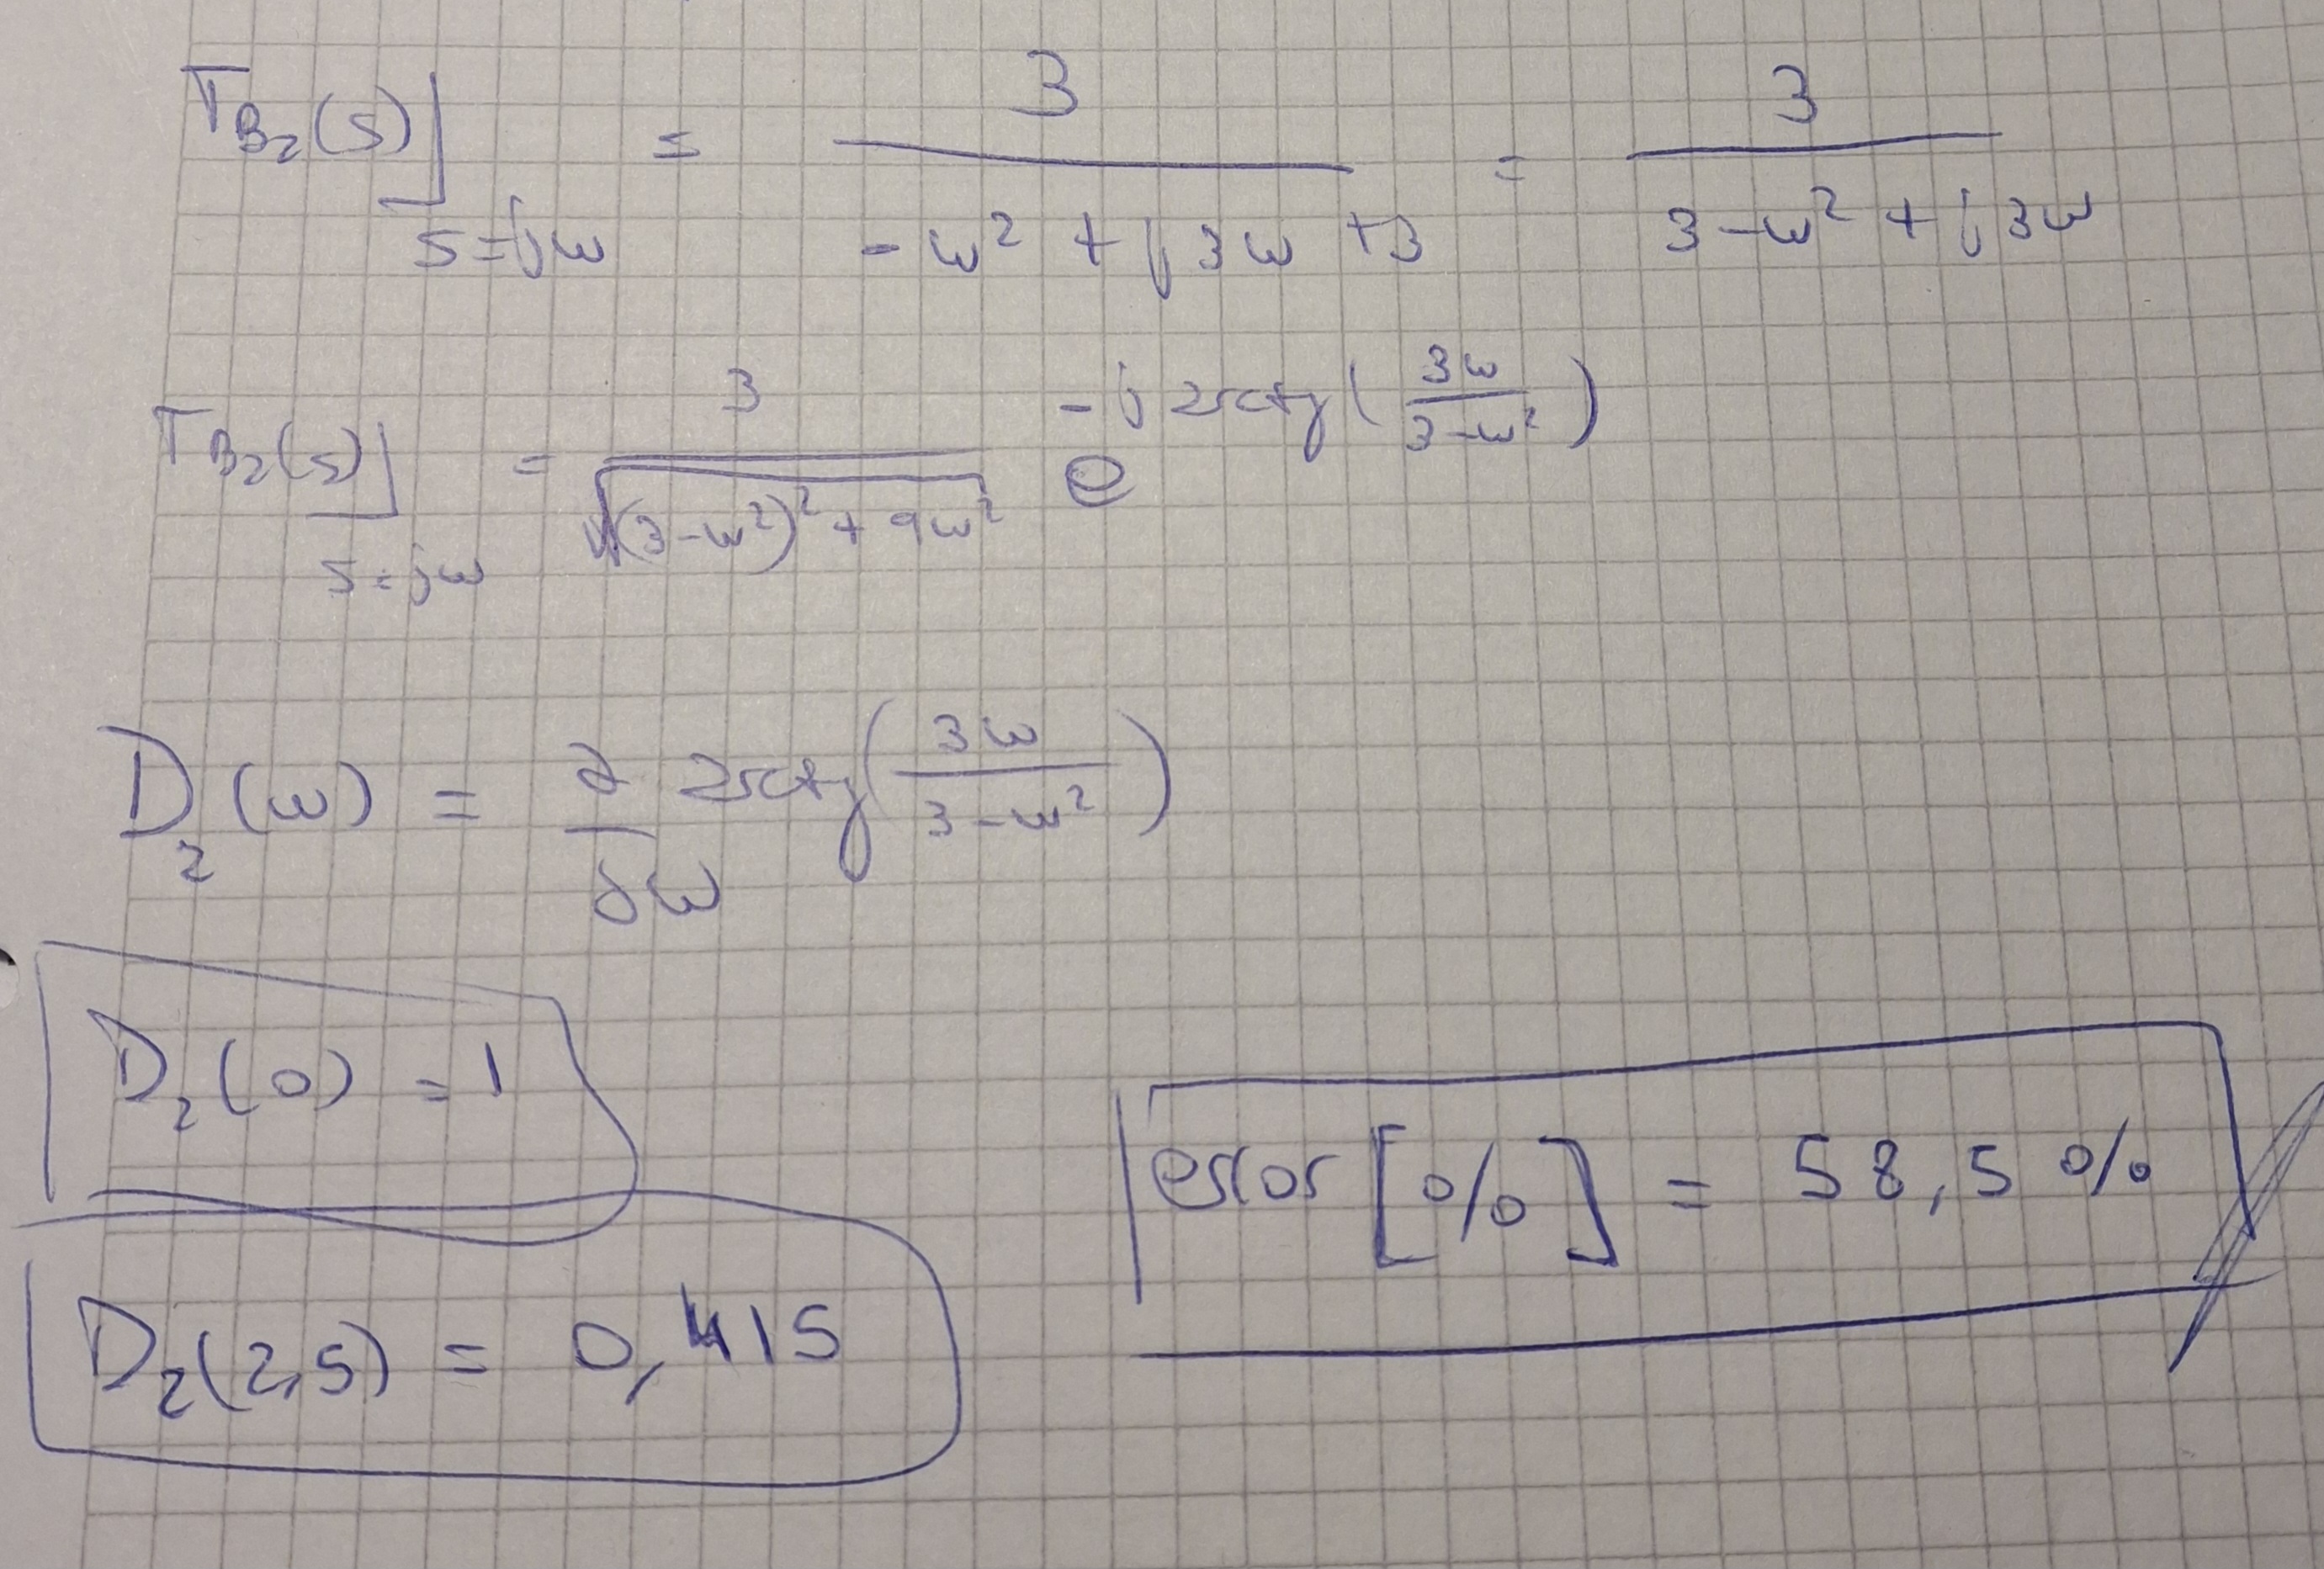 T_B2(s)]_s=jω = 3 / (-ω² + j3ω + 3) = 3 / (3-ω² + j3ω)
T_B2(s)]_s=jω = 3 / √((3-ω²)² + 9ω²) e^(-j arctg(3ω / (3-ω²)))
D_2(ω) = ∂/∂ω arctg(3ω / (3-ω²))
D_2(0) = 1
error [%] = 58,5 %
D_2(2,5) = 0,415